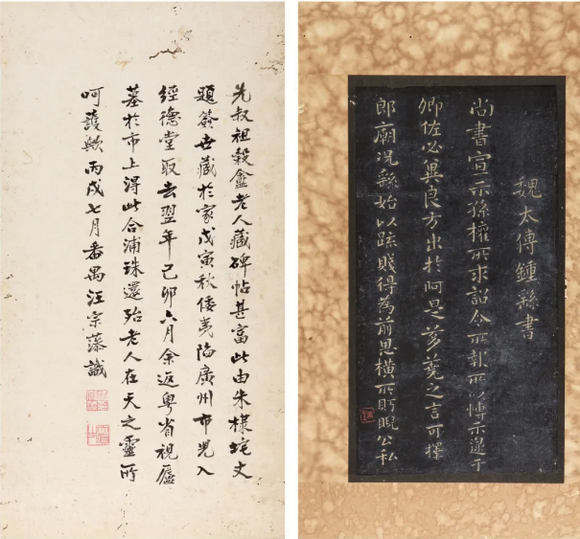 魏太傅鍾繇書
尚書宣示孫權所求詔令所報所以博示逮于
卿佐必冀良方出於阿是芻蕘之言可擇
郎廟況繇始以疏賤得為前恩橫所眄睨公私
先叔祖穀盦老人藏碑帖甚富此由朱棣垞丈
題簽世藏於家戊寅秋倭夷陷廣州市兇入
經德堂取去翌年己卯六月余返粵省視廬
墓於市上得此合浦珠還殆老人在天之靈所
呵護歟丙戌七月番禺汪宗藻識